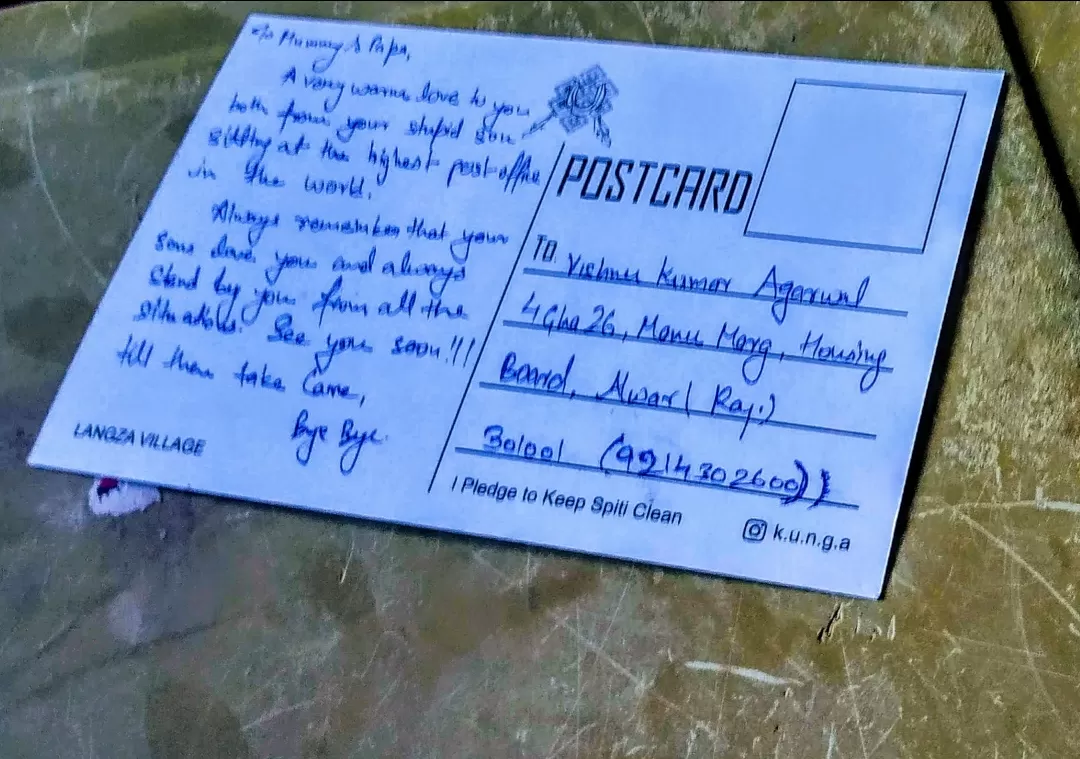 To Mummy & Papa,
A very warm love to you
both from your stupid son
sitting at the highest post office
in the world.
Always remember that your
sons love you and always
stand by you from all the
situations. See you soon!!!
till then take Care,
Bye Bye.
LANGZA VILLAGE
POSTCARD
To. Vishnu Kumar Agarwal
4 Gha 26, Manu Marg, Housing
Board, Alwar (Raj.)
301001 (9214302600)
I Pledge to Keep Spiti Clean
k.u.n.g.a